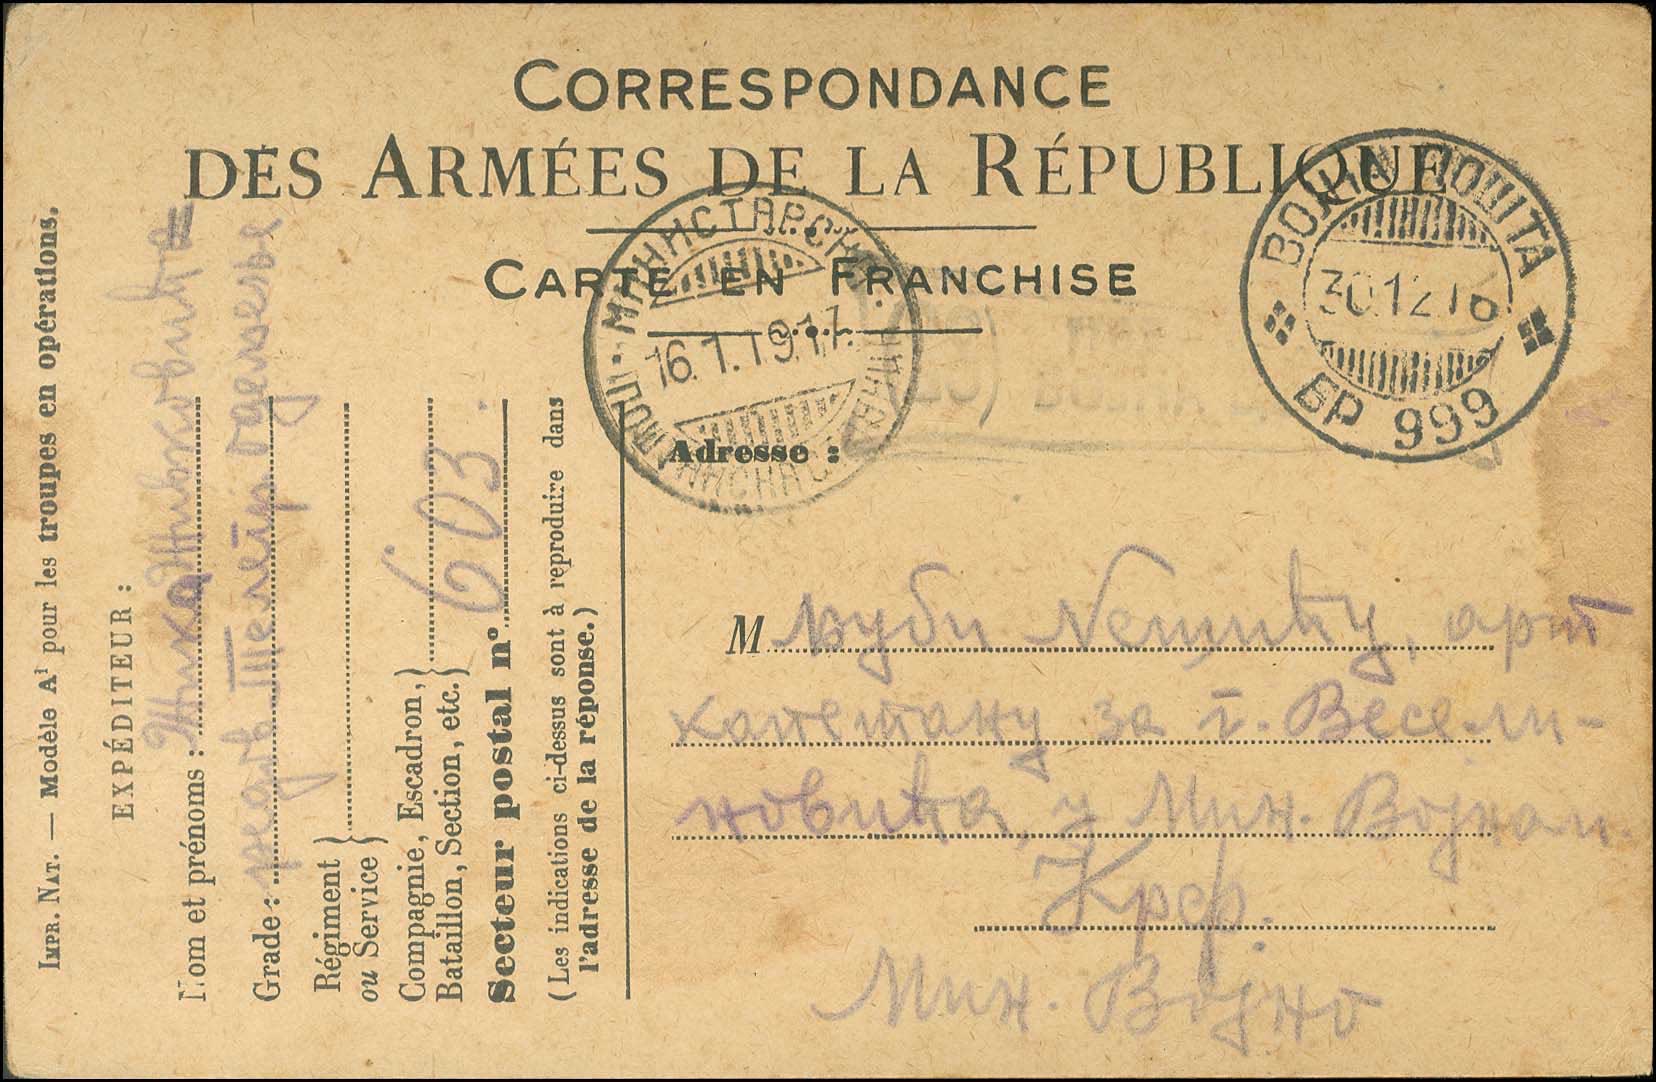 CORRESPONDANCE
DES ARMÉES DE LA RÉPUBLIQUE
CARTE EN FRANCHISE
ВОЈНА ПОШТА
30.12.16
БР 999
МИНИСТАРСКА
16.1.1917.
IMPR. NAT. — Modèle A¹ pour les troupes en opérations.
EXPÉDITEUR :
Nom et prénoms : Жика Живковић
Grade :
Régiment
ou Service
Compagnie, Escadron,
Bataillon, Section, etc.
Secteur postal n° 603.
(Les indications ci-dessus sont à reproduire dans
l'adresse de la réponse.)
Adresse :
M Љуби Нешићу, арт
капетану за г. Весели-
новића, у Мин. Војном.
Крф.
Мин. Војно